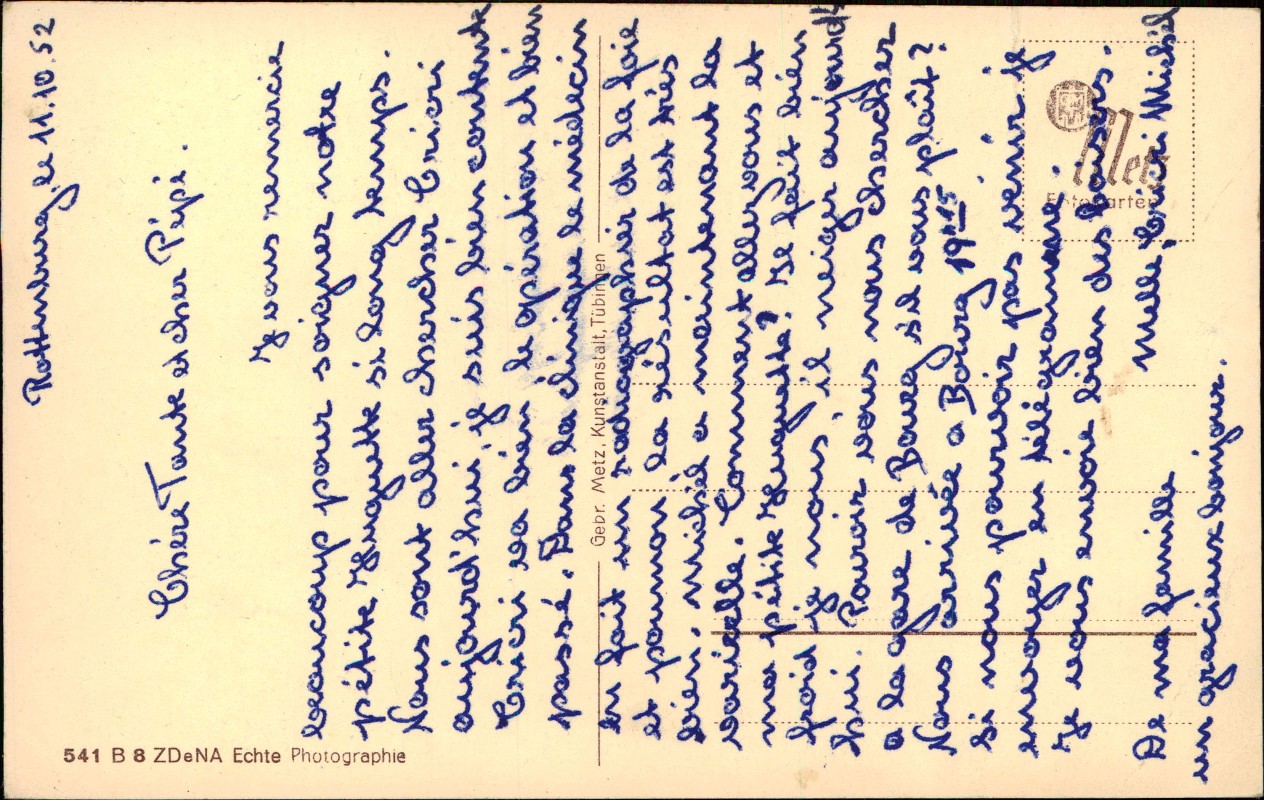 Rottenburg, le 11.10.52
Chère Tante et cher Pépé.
Je vous remercie
beaucoup pour soigner notre
pétite Huguette si long temps.
Nous sont aller chercher Cricri
aujourd'hui, je suis bien contente
Cricri va bien le opération et bien
passé. Dans la clinique le médecin
en fait un radiographié de la foie
et poumon la résultat est très
bien. Michél a maintenant la
varicelle. Comment allez vous et
ma pétite Huguette? Il fait bien
froid je nous, il neiger aujourd'
hui. Pouvoir vous nous chercher
a la gare de Bourg sil vous plaît?
Nous arrivée a Bourg 19h15
Si nous pouvoir pas venir je
envoyer un télégramme.
Je vous envoie bien des baisers.
Mille, Cricri Michél
De ma famille
un gracieux bonjour.
541 B 8 ZDeNA Echte Photographie
Gebr. Metz, Kunstanstalt, Tübingen
Metz
Fotokarten